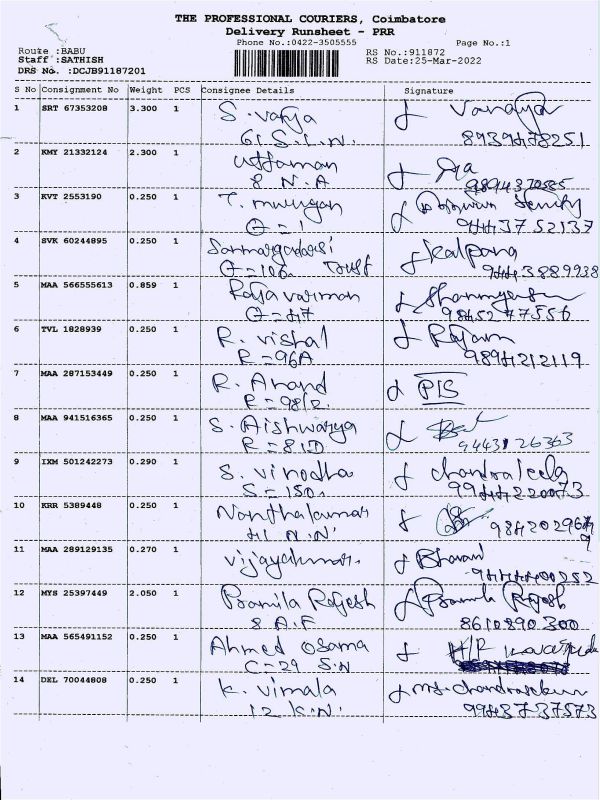 THE PROFESSIONAL COURIERS, Coimbatore
Delivery Runsheet - PRR
Phone No.:0422-3505555 Page No.:1
Route :BABU RS No.:911872
Staff :SATHISH RS Date:25-Mar-2022
DRS No. :DCJB91187201
S No Consignment No Weight PCS Consignee Details Signature
1 SRT 67353208 3.300 1 S. Varya
8939478251
2 KMY 21332124 2.300 1 Uttaman
8 N.A
3 KVT 2553190 0.250 1 T. Murugan
9443752137
4 SVK 60244895 0.250 1 Kalpana
G=106 Trust 9443889938
5 MAA 566555613 0.859 1 Raja varman
G=47 9845277556
6 TVL 1828939 0.250 1 R. vishal Rajam
R=96A 9894212119
7 MAA 287153449 0.250 1 R. Anand
8 MAA 941516365 0.250 1 S. Aishwarya
R=81D 9443126363
9 IXM 501242273 0.290 1 S. vinodha chandraleela
S=150 9944220073
10 KRR 5389448 0.250 1 Nanthakumar
41 N.N
11 MAA 289129135 0.270 1 vijayakumar. Bhavani
9444400252
12 MYS 25397449 2.050 1 Pramila Rajesh Pramila Rajesh
8 A.F 8610890300
13 MAA 565491152 0.250 1 Ahmed Osama H/R
C=29 S.N
14 DEL 70044808 0.250 1 K. Vimala
12 K.N. 9943737573